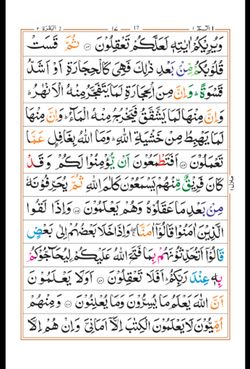 الٓمّٓ ١
البقرة ٢
وَيُرِيْكُمْ اٰيٰتِهٖ لَعَلَّكُمْ تَعْقِلُوْنَ ۝ ثُمَّ قَسَتْ
قُلُوْبُكُمْ مِّنْۢ بَعْدِ ذٰلِكَ فَهِيَ كَالْحِجَارَةِ اَوْ اَشَدُّ
قَسْوَةً ؕ وَاِنَّ مِنَ الْحِجَارَةِ لَمَا يَتَفَجَّرُ مِنْهُ الْاَنْهٰرُ ؕ
وَاِنَّ مِنْهَا لَمَا يَشَّقَّقُ فَيَخْرُجُ مِنْهُ الْمَآءُ ؕ وَاِنَّ مِنْهَا
لَمَا يَهْبِطُ مِنْ خَشْيَةِ اللّٰهِ ؕ وَمَا اللّٰهُ بِغَافِلٍ عَمَّا
تَعْمَلُوْنَ ۝ اَفَتَطْمَعُوْنَ اَنْ يُّؤْمِنُوْا لَكُمْ وَقَدْ
كَانَ فَرِيْقٌ مِّنْهُمْ يَسْمَعُوْنَ كَلٰمَ اللّٰهِ ثُمَّ يُحَرِّفُوْنَهٗ
مِنْۢ بَعْدِ مَا عَقَلُوْهُ وَهُمْ يَعْلَمُوْنَ ۝ وَاِذَا لَقُوا
الَّذِيْنَ اٰمَنُوْا قَالُوْۤا اٰمَنَّا ۚ وَاِذَا خَلَا بَعْضُهُمْ اِلٰى بَعْضٍ
قَالُوْۤا اَتُحَدِّثُوْنَهُمْ بِمَا فَتَحَ اللّٰهُ عَلَيْكُمْ لِيُحَآجُّوْكُمْ
بِهٖ عِنْدَ رَبِّكُمْ ؕ اَفَلَا تَعْقِلُوْنَ ۝ اَوَلَا يَعْلَمُوْنَ
اَنَّ اللّٰهَ يَعْلَمُ مَا يُسِرُّوْنَ وَمَا يُعْلِنُوْنَ ۝ وَمِنْهُمْ
اُمِّيُّوْنَ لَا يَعْلَمُوْنَ الْكِتٰبَ اِلَّاۤ اَمَانِيَّ وَاِنْ هُمْ اِلَّا
منزل ١